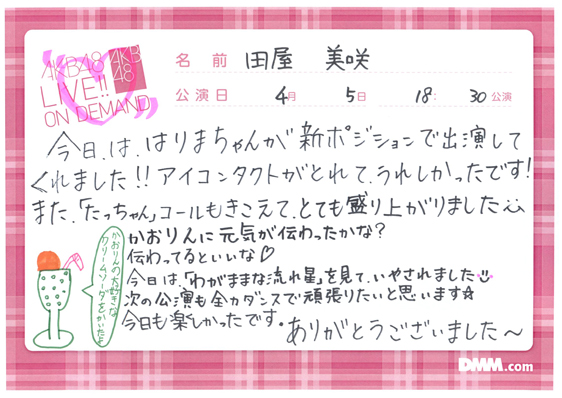 AKB48
LIVE!!
ON DEMAND
AKB
48
名前 田屋 美咲
公演日 4月 5日 18: 30公演
今日は、はりまちゃんが新ポジションで出演して
くれました!!アイコンタクトがとれて、うれしかったです!
また、「たっちゃん」コールもきこえて、とても盛り上がりました
かおりんに元気が伝わったかな?
伝わってるといいな♡
今日は、「わがままな流れ星」を見て、いやされました
次の公演も全力ダンスで頑張りたいと思います☆
今日も楽しかったです。ありがとうございました～
かおりんの大好きな
クリームソーダをかいたよ
DMM.com